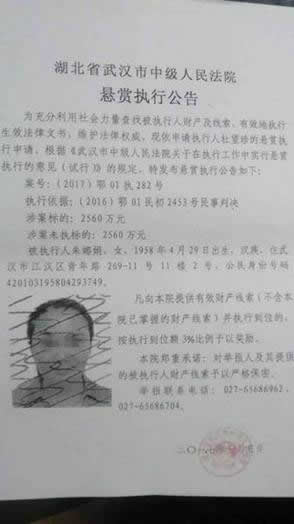 湖北省武汉市中级人民法院
悬赏执行公告
为充分利用社会力量查找被执行人财产及线索，有效地执行
生效法律文书，维护法律权威，现依申请执行人杜望珍的悬赏执
行申请，根据《武汉市中级人民法院关于在执行工作中实行悬赏
执行的意见（试行）》的规定，特发布悬赏执行公告如下：
案号：（2017）鄂01执282号
执行依据：（2016）鄂01民初2453号民事判决
涉案标的：2560万元
涉案未执标的：2560万元
被执行人朱娜娟，女，1958年4月29日出生，汉族，住武
汉市江汉区青年路269-11号11楼2号，公民身份号码
420103195804293749。
凡向本院提供有效财产线索（不含本
院已掌握的财产线索）并执行到位的，
按执行到位额3%比例予以奖励。
本院郑重承诺：对举报人及其提供
的被执行人财产线索予以严格保密。
举报联系电话：027-65686962，
027-65686704。
二〇一七年